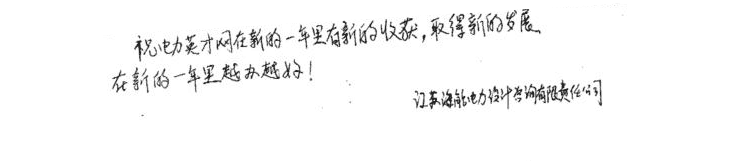 祝电力英才网在新的一年里有新的收获，取得新的发展
在新的一年里越办越好！
江苏海能电力设计咨询有限责任公司